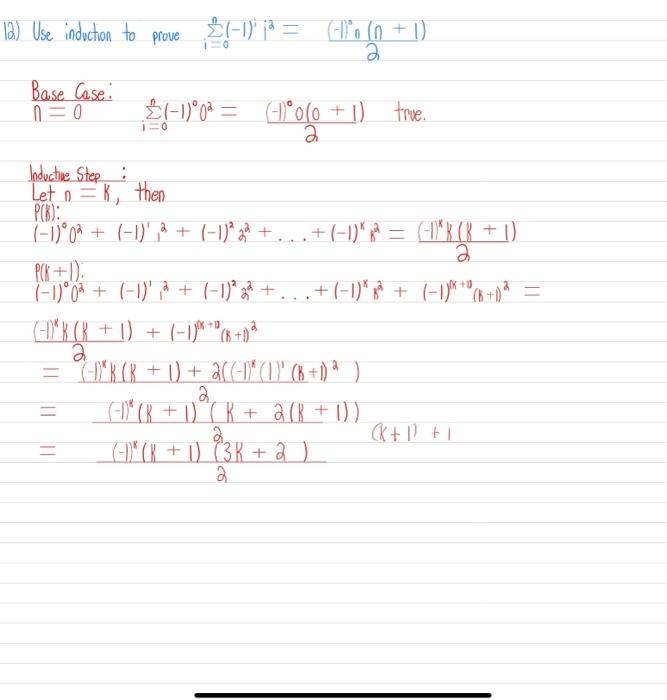 12) Use induction to prove \sum_{i=0}^{n} (-1)^i i^2 = \frac{(-1)^n n(n+1)}{2}
Base Case:
n = 0 \sum_{i=0}^{n} (-1)^0 0^2 = \frac{(-1)^0 0(0+1)}{2} true.
Inductive Step :
Let n = K, then
P(K):
(-1)^0 0^2 + (-1)^1 1^2 + (-1)^2 2^2 + ... + (-1)^K K^2 = \frac{(-1)^K K(K+1)}{2}
P(K+1):
(-1)^0 0^2 + (-1)^1 1^2 + (-1)^2 2^2 + ... + (-1)^K K^2 + (-1)^{(K+1)} (K+1)^2 =
\frac{(-1)^K K(K+1)}{2} + (-1)^{(K+1)} (K+1)^2
= \frac{(-1)^K K(K+1) + 2((-1)^K (1)^1 (K+1)^2)}{2}
= \frac{(-1)^K (K+1)(K + 2(K+1))}{2}
(K+1) + 1
= \frac{(-1)^K (K+1)(3K+2)}{2}